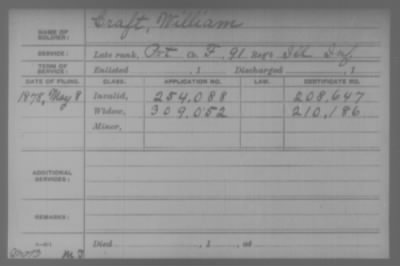 NAME OF SOLDIER: Craft, William
SERVICE: Late rank, Pvt Co. F, 91 Reg't Ill Inf.
TERM OF SERVICE: Enlisted , 1 Discharged , 1
DATE OF FILING. CLASS. APPLICATION NO. LAW. CERTIFICATE NO.
1878, May 8 Invalid, 254,088 208,647
Widow, 309,052 210,186
Minor,
ADDITIONAL SERVICES:
REMARKS:
Died , 1 , at